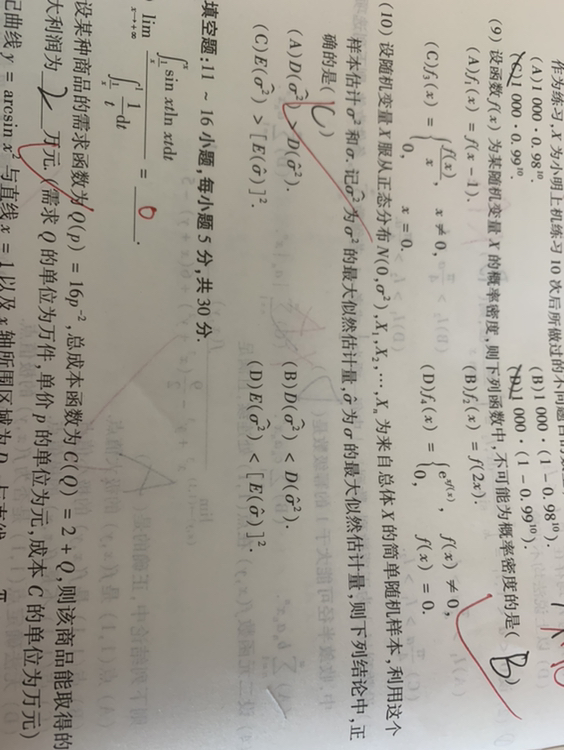 作为练习,X为小明上机练习10次后所做过的不同题目的数
(A)1 000·0.98¹⁰.
(B)1 000·(1-0.98¹⁰).
(C)1 000·0.99¹⁰.
(D)1 000·(1-0.99¹⁰).
(9) 设函数f(x)为某随机变量X的概率密度,则下列函数中,不可能为概率密度的是( B )
(A)f₁(x) = f(x-1).
(B)f₂(x) = f(2x).
(C)f₃(x) = { f(x)/x, x ≠ 0,
0, x = 0.
(D)f₄(x) = { e^{xf(x)}, f(x) ≠ 0,
0, f(x) = 0.
(10) 设随机变量X服从正态分布N(0,σ²),X₁,X₂,…,Xₙ为来自总体X的简单随机样本,利用这个
样本估计σ²和σ.记σ̂²为σ²的最大似然估计量,σ̂为σ的最大似然估计量,则下列结论中,正
确的是( C )
(A)D(σ̂²) > D(σ̂²).
(B)D(σ̂²) < D(σ̂²).
(C)E(σ̂²) > [E(σ̂)]².
(D)E(σ̂²) < [E(σ̂)]².
填空题:11 ~ 16小题,每小题5分,共30分.
lim x→+∞ ∫ sin xtln xtdt / ∫ 1/t dt = 0 .
设某种商品的需求函数为Q(p) = 16p⁻²,总成本函数为C(Q) = 2+Q,则该商品能取得的
大利润为 2 万元.(需求Q的单位为万件,单价p的单位为元,成本C的单位为万元)
记曲线y = arcsin x²与直线x = 1以及x轴所围区域为D